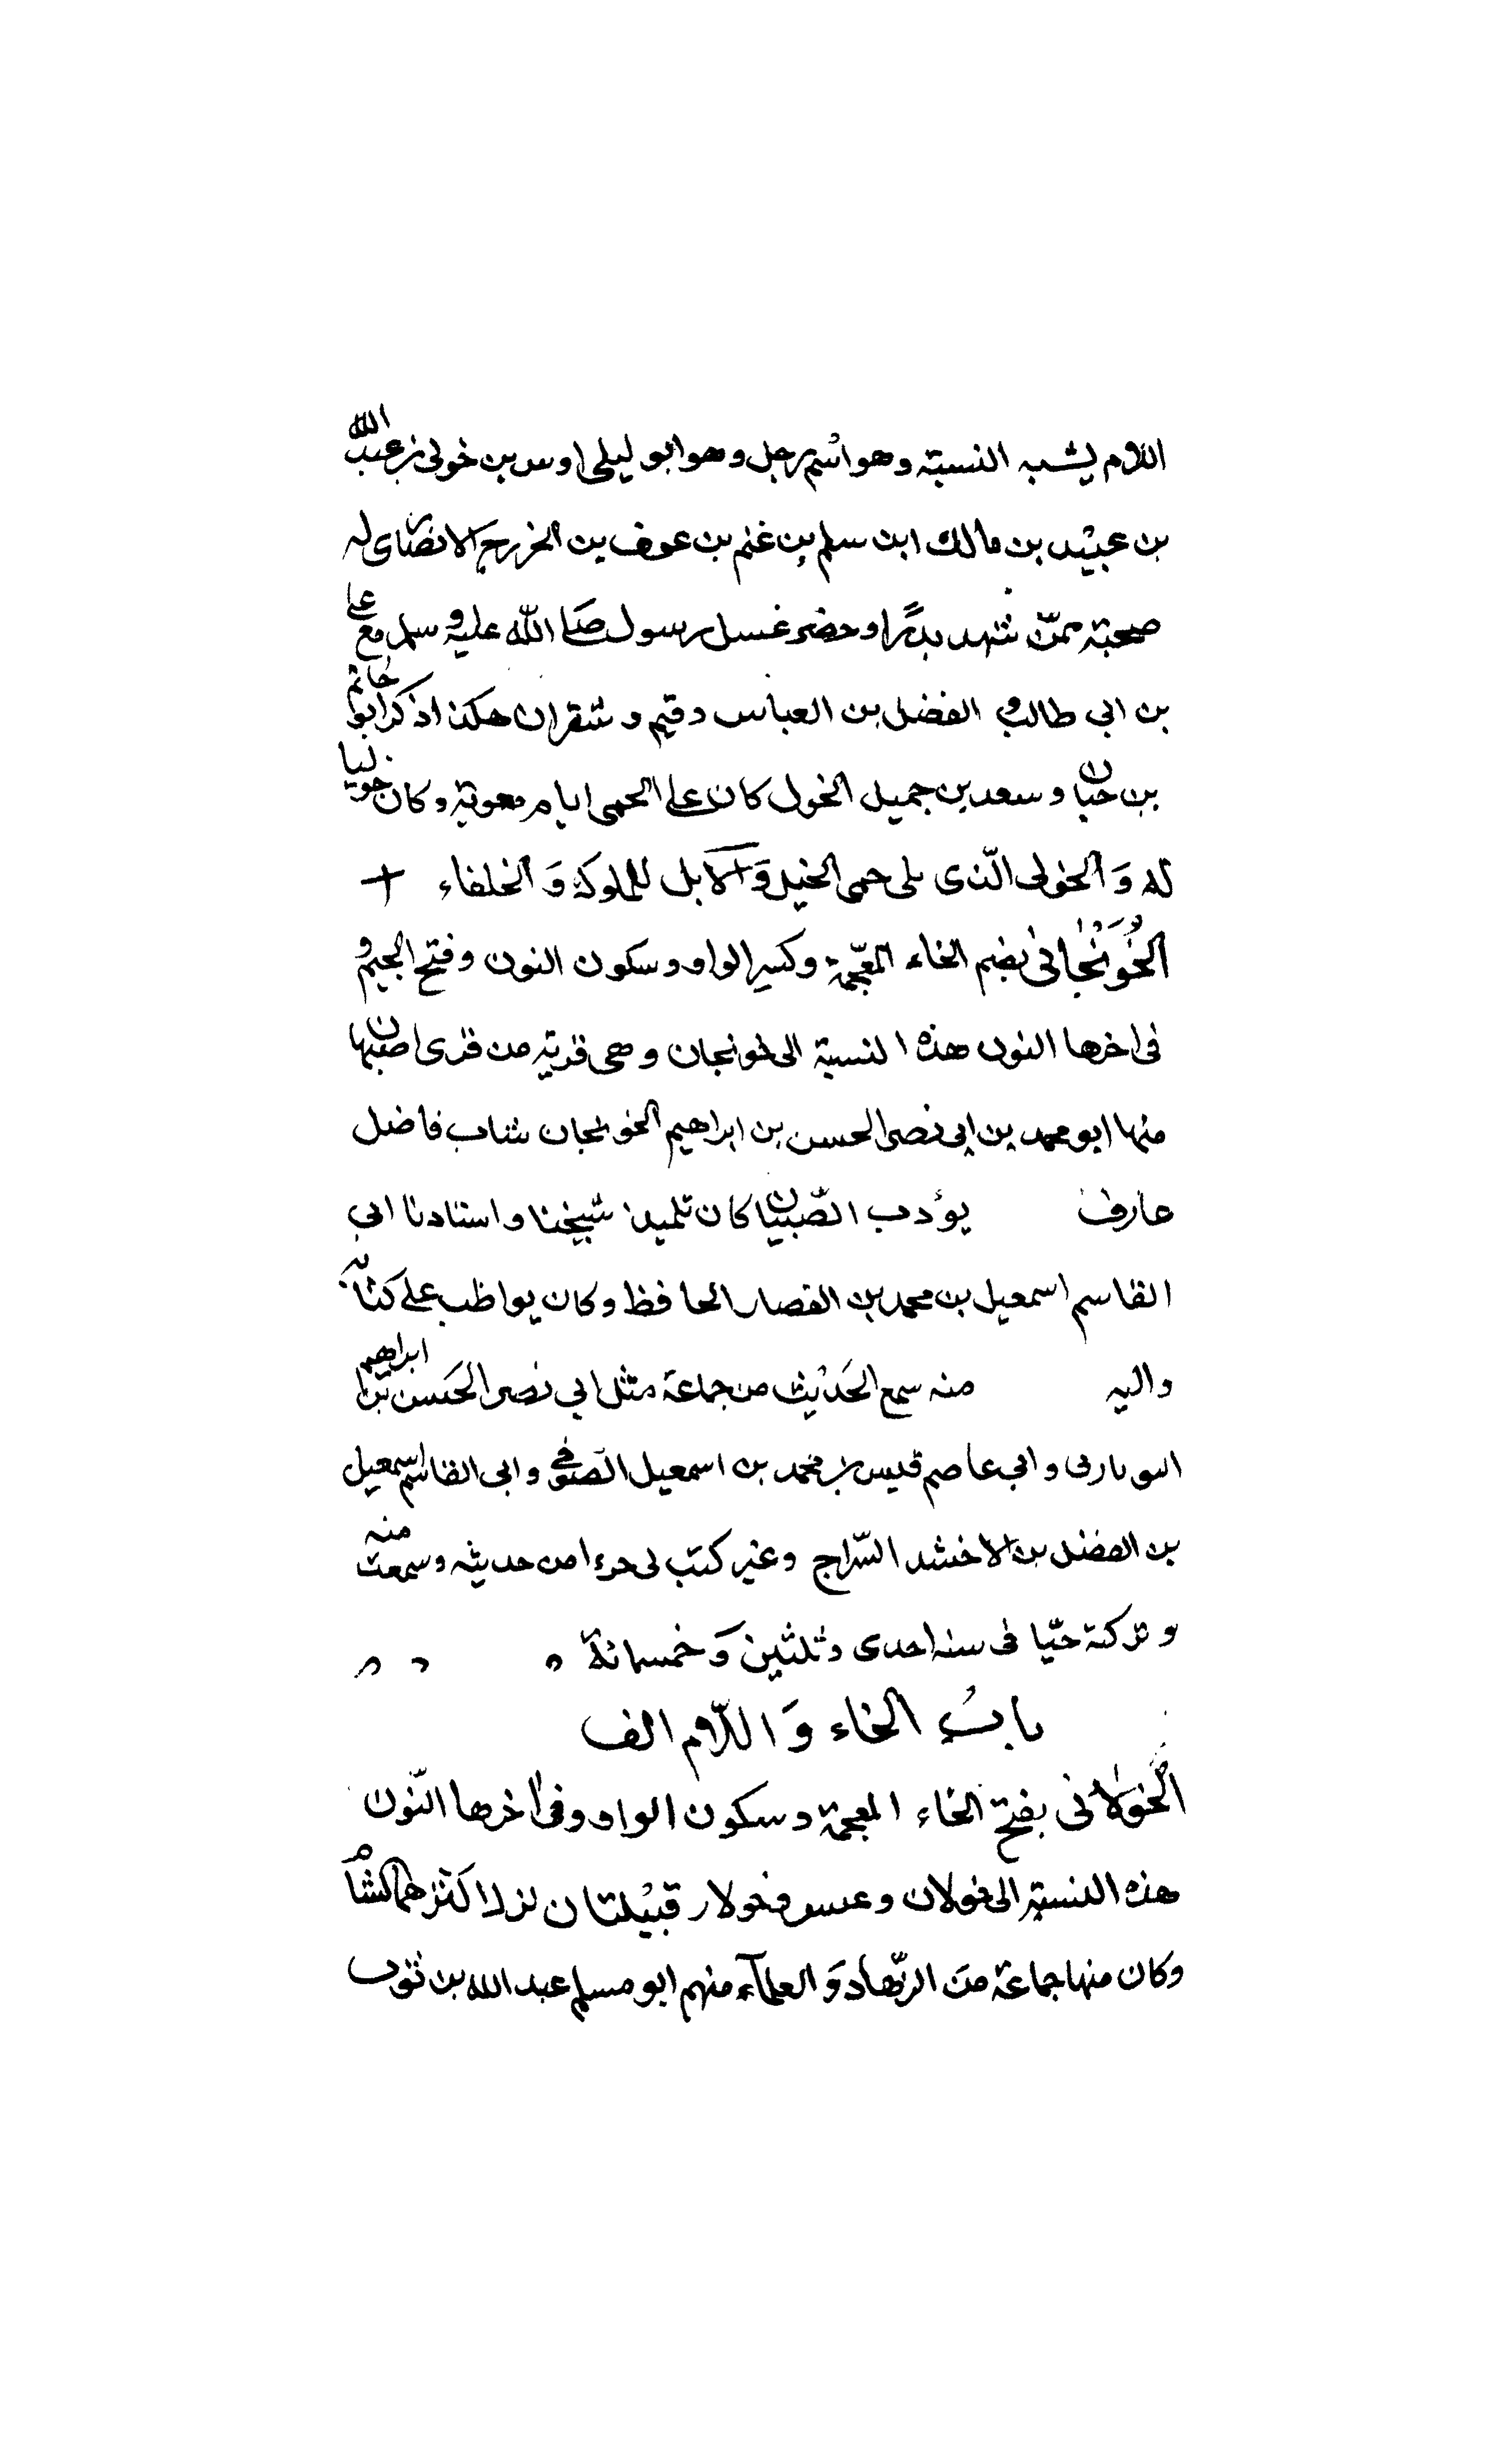 اللام يشبه النسبة وهو اسم رجل وهو ابو ليلى اوس بن خولى بن عبد الله
بن عبيد بن مالك ابن سلم بن غنم بن عوف بن الخزرج الانصارى له
صحبة ممّن شهد بدرًا وحضر غسل رسول صلى الله عليه وسلم مع على
بن ابى طالب و الفضل بن العباس وقثم و شقران هكذا ذكر ابو حاتم
بن حبان و سعد بن جميل الخول كان على الحمى ايام معوية وكان
له وَ الخولى الّذى يلى حمى الخيل وَ الابل للملوك وَ الخلفاء
الخُوَنْجانى بضم الخاء المعجمة وكسر الواو وسكون النون وفتح الجيم و
فى اخرها النون هذه النسبة الى خونجان وهى قرية من قرى اصبهان
منها ابو محمد بن ابى نصر الحسن بن ابراهيم الخونجان شاب فاضل
عارف يؤدب الصّبيان كان تلميذ شيخنا واستادنا ابى
القاسم اسمعيل بن محمد بن الفضل الحافظ وكان يواظب على كتابه
واليه منه سمع الحَديث من جماعة مثل ابى نصر الحَسن بن ابراهيم
وابى عاصم قيس بن محمد بن اسمعيل الصّوفى وابى القاسم اسمعيل
بن الفضل بن الاخشد السّراج وغير كتب لى جزءا من حديثه وسمعت منه
و تركته حيّا فى سنه احدى وثلثين وَ خمسمائة
بابُ الخاء وَ اللّام الف
الخَوْلانى بفتح الخاء المعجمة وسكون الواو وفى اخرها النّون
هذه النسبة الى خولان وعبس وخولان قبيلتان نزلا اكثرهما الشام
وكان منها جماعة منَ الزّهاد وَ العلمآء منهم ابو مسلم عبد الله بن ثوب